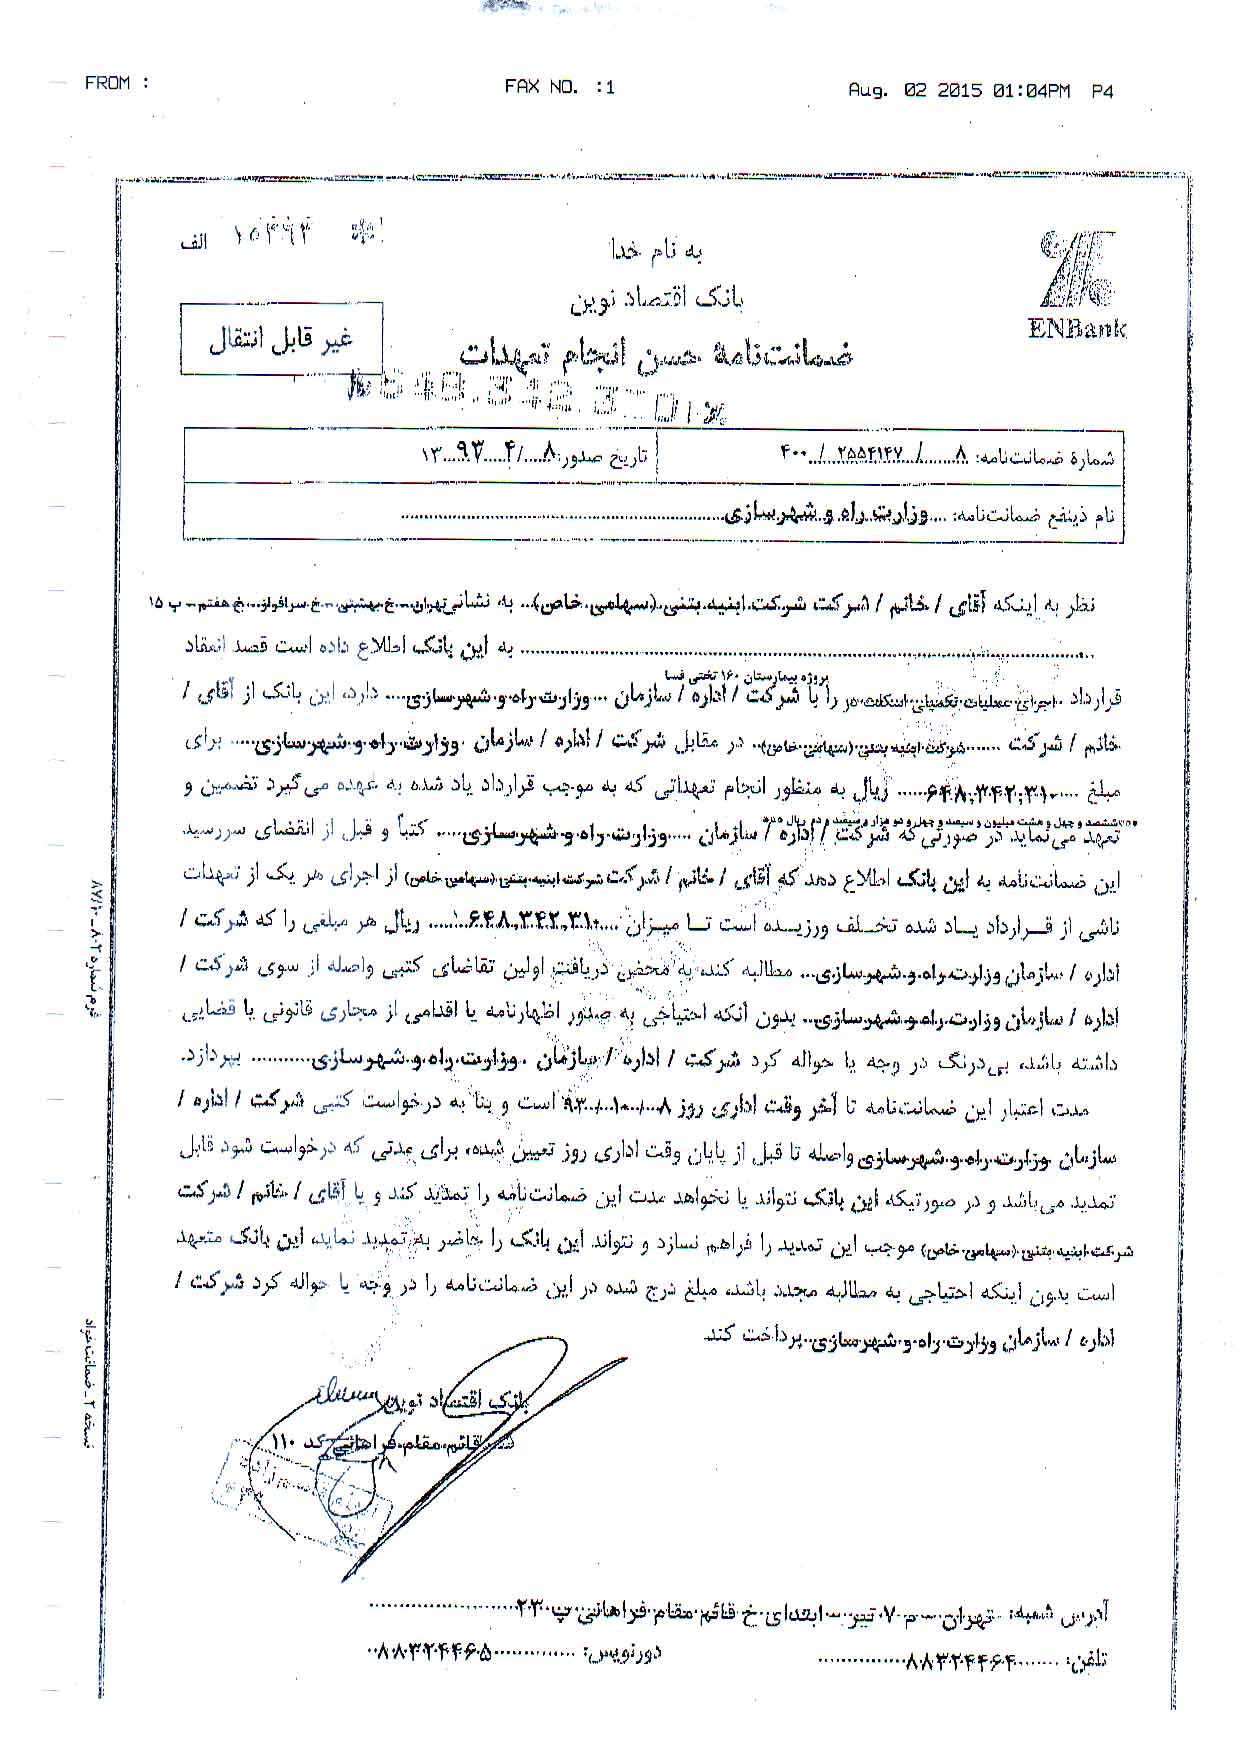 FROM :
FAX NO. :1
Aug. 02 2015 01:04PM P4
۱۵۴۹۳ الف
به نام خدا
بانک اقتصاد نوین
ENBank
ضمانت‌نامهٔ حسن انجام تعهدات
غیر قابل انتقال
شمارهٔ ضمانت‌نامه: ۸......./...۲۵۵۴۱۴۷.../...۴۰۰
تاریخ صدور: ۸..../...۴.....۱۳...۹۳
نام ذینفع ضمانت‌نامه: ....وزارت راه و شهرسازی
نظر به اینکه آقای / خانم / شرکت شرکت ابنیه بتنی (سهامی خاص).. به نشانی تهران - خ بهشتی - خ سرافراز - خ هفتم - پ ۱۵
به این بانک اطلاع داده است قصد انعقاد
پروژه بیمارستان ۱۶۰ تختی فسا
قرارداد ..اجرای عملیات تکمیلی اسکلت در را با شرکت / اداره / سازمان ...وزارت راه و شهرسازی.... دارد، این بانک از آقای /
خانم / شرکت .......شرکت ابنیه بتنی (سهامی خاص).. در مقابل شرکت / اداره / سازمان .وزارت راه و شهرسازی..... برای
مبلغ .....۶۴۸,۳۴۲,۳۱۰...... ریال به منظور انجام تعهداتی که به موجب قرارداد یاد شده به عهده می‌گیرد تضمین و
ششصد و چهل و هشت میلیون و سیصد و چهل و دو هزار و سیصد و ده ریال
تعهد می‌نماید در صورتی که شرکت / اداره / سازمان .....وزارت راه و شهرسازی..... کتباً و قبل از انقضای سررسید
این ضمانت‌نامه به این بانک اطلاع دهد که آقای / خانم / شرکت شرکت ابنیه بتنی (سهامی خاص) از اجرای هر یک از تعهدات
ناشی از قـــرارداد یـــاد شده تخـــلف ورزیـــده است تـــا میـزان ....۶۴۸,۳۴۲,۳۱۰...... ریال هر مبلغی را که شرکت /
اداره / سازمان وزارت راه و شهرسازی... مطالبه کند، به محض دریافت اولین تقاضای کتبی واصله از سوی شرکت /
اداره / سازمان وزارت راه و شهرسازی... بدون آنکه احتیاجی به صدور اظهارنامه یا اقدامی از مجاری قانونی یا قضایی
داشته باشد، بی‌درنگ در وجه یا حواله کرد شرکت / اداره / سازمان ..وزارت راه و شهرسازی........... بپردازد.
مدت اعتبار این ضمانت‌نامه تا آخر وقت اداری روز ۸.../...۱۰.../...۹۳ است و بنا به درخواست کتبی شرکت / اداره /
سازمان وزارت راه و شهرسازی واصله تا قبل از پایان وقت اداری روز تعیین شده، برای مدتی که درخواست شود قابل
تمدید می‌باشد و در صورتیکه این بانک نتواند یا نخواهد مدت این ضمانت‌نامه را تمدید کند و یا آقای / خانم / شرکت
شرکت ابنیه بتنی (سهامی خاص) موجب این تمدید را فراهم نسازد و نتواند این بانک را حاضر به تمدید نماید، این بانک متعهد
است بدون اینکه احتیاجی به مطالبه مجدد باشد، مبلغ درج شده در این ضمانت‌نامه را در وجه یا حواله کرد شرکت /
اداره / سازمان وزارت راه و شهرسازی..پرداخت کند.
بانک اقتصاد نوین
قائم مقام فراهانی کد ۱۱۰
آدرس شعبه: تهران - م ۷ تیر - ابتدای خ قائم مقام فراهانی پ ۲۳۰
تلفن: ........۸۸۳۲۴۴۶۴
دورنویس: ..............۸۸۳۲۴۴۶۵
فرم شماره ۸۰۲-۸۷/۱۰
نسخه ۲ـ ضمانت‌خواه